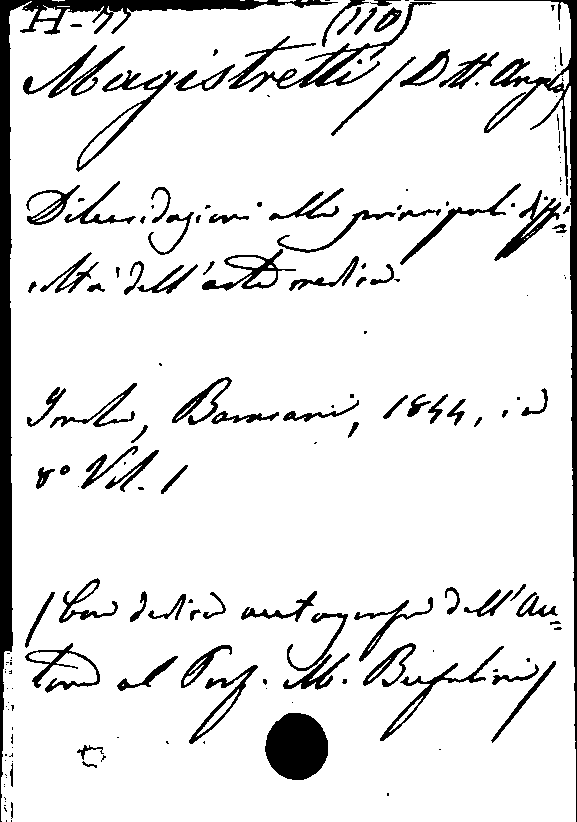 H-77 (110)
Magistretti (Dott. Angelo)
Dilucidazioni alle principali diffi=
coltà dell'arte medica.
Imola, Baracani, 1844, in
8° Vol. 1
(Con dedica autografa dell'Au=
tore al Prof. M. Bufalini)